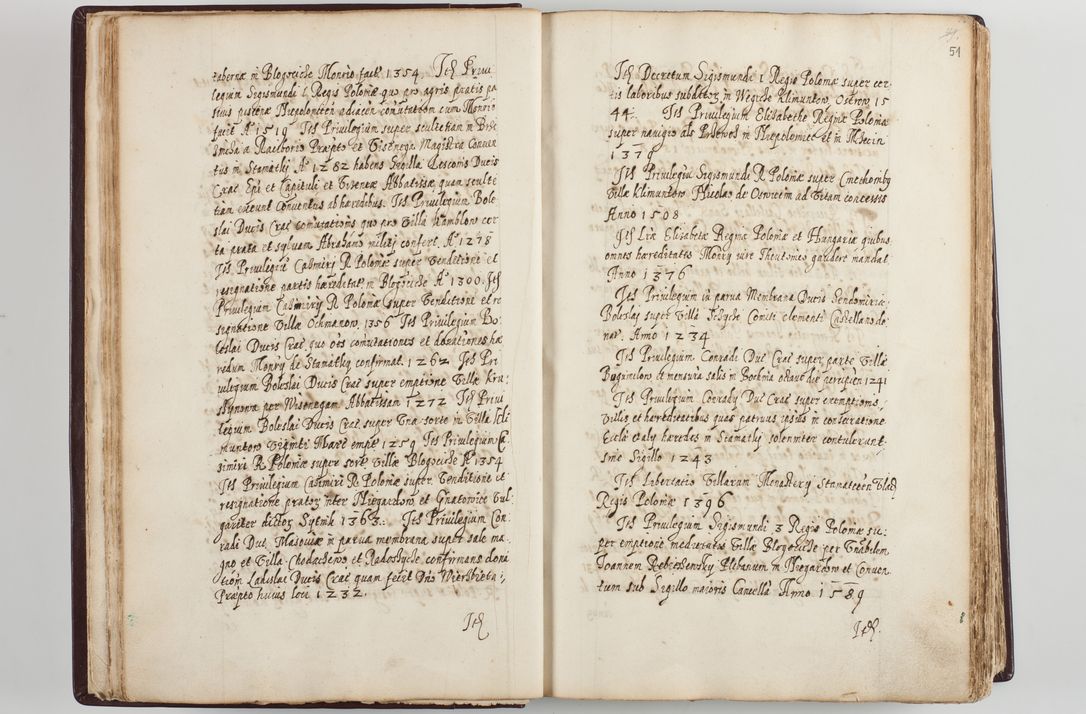 tabernæ in Blogocicze Monrio fact. 1354. Itẽ Priui
legium Sigismundi 1 Regis Poloniæ quo pro agris pratis pa
scuis piscinæ Niepolomicen adiacen comutatum cum Monrio
facit Aº 1519 Itẽ Priuilegium super scultetiam in
a Raciborio Præpto et Visenega Magistra Conuen
tus in Stamatky Aº 1282 habens Sigilla Lesconis Ducis
Crac Epi et Capituli et Visenegæ Abbatissæ quam sculte
tiam exeunt Conuentus ab hæredibus. Itẽ Priuilegium Bole
slai Ducis Crac comutationis quo pro villa Kamblow cer
ta prata et syluam Abrahamo militj confert. Aº 1278
Itẽ Priuilegiũ Casimiri R Poloniæ super Venditione et
resignatione partis hæreditat. in Blogocicze Aº 1300. Itẽ
Priuilegium Casimirij R Poloniæ super Venditione et re
signatione Villæ Ochmanow. 1356 Itẽ Priuilegium Bo:
leslai Ducis Crac quo oẽs comutationes et donationes hæ
redum Monrij de Stamatky confirmat. 1262 Itẽ Pri
uilegium Boleslai Ducis Crac super emptione Villæ Kru:
per Wisenegam Abbatissam 1272 Itẽ Priui
legium Boleslai Ducis Crac super Vna sorte in Villa Kli
muntow Viginti Marc empt. 1259 Itẽ Priuilegium Ca
simiri R Poloniæ super sorte Villæ Blogocicze Aº 1354
Itẽ Priuilegium Casimiri R Poloniæ super Venditione et
resignatione pratoꝝ inter Niegardow et Gnatowice Vul
gariter dictoꝝ 1363. Itẽ Priuilegium Con
radi Duc. Masouiæ in parua membrana super sale ma
gno et Villa Chodaczewo et Radoszycze confirmans dona
tioñ Ladislai Ducis Crac quam fecit Dns Wiersbieta,
Præpto huius loci 1232.
Itẽ
51
Itẽ Decretum Sigismundi 1 Regis Poloniæ super cer
tis laboribus subditoꝝ in Wegrcze Klimuntow Ostrow 15
44. Itẽ Priuilegium Elisabethæ Reginæ Poloniæ
super nauigio als Przewos in Niepolomice et in
1379
Itẽ Priuilegiũ Sigismundi R Poloniæ super
Villæ Klimuntow Nicolao de Oswiecim ad Vitam concessis
Anno 1508
Itẽ Lræ Elisabetæ Reginæ Poloniæ et Hungariæ quibus
omnes hæreditates Monrij iure Theutonico gaudere mandat
Anno 1376
Itẽ Priuilegium in parua Membrana Ducis Sendomiriæ
Boleslaj super Villa Comiti clementi Castellano do
nat. Anno 1234
Itẽ Priuilegium Conradi Duc Crac super parte Villæ
Bogumilow et mensura salis in Bochnia octauo die percipien 1241
Itẽ Priuilegium Conradij Duc Crac super exemptionis,
Villis et hæreditatibus quas patruus ipsius in consecratione
Ecclæ et alij hæredes in Stamatky solenniter contulerunt.
sine Sigillo 1243
Itẽ Libertatio Villarum Monasterij Stamatecen Vlad.
Regis Poloniæ 1396
Itẽ Priuilegium Sigismundi 3 Regis Poloniæ su:
per emptione medietatis Villæ Blogocicze per Vnabilem
Joannem Plebanum in Niegardow et Conuen
tum sub Sigillo maioris Cancellæ Anno 1589
Itẽ.